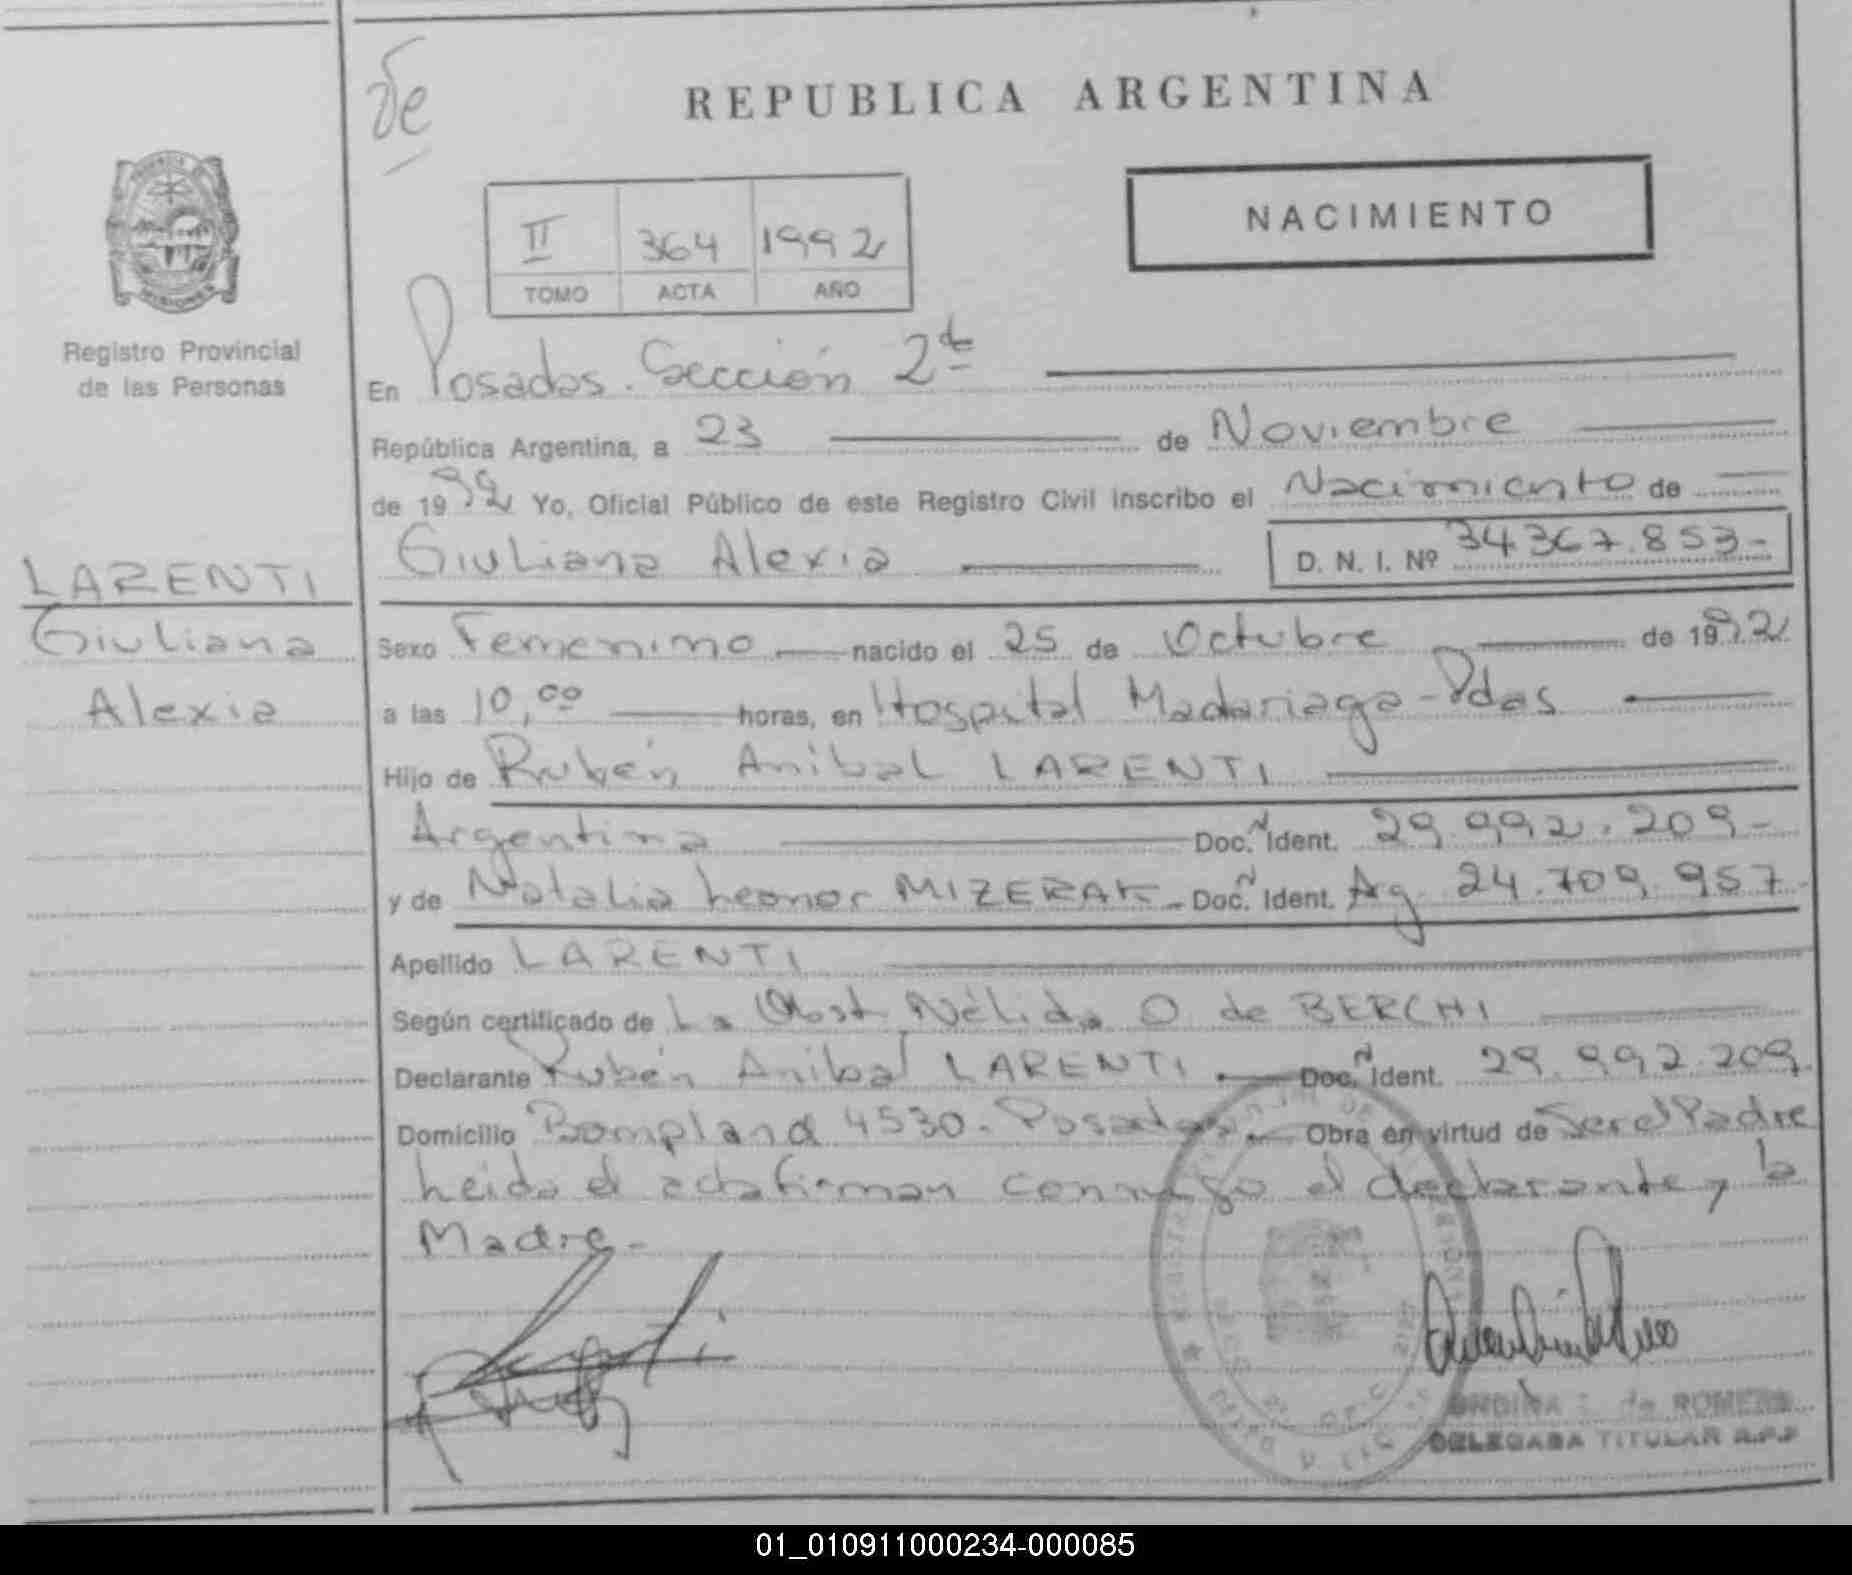 de
REPUBLICA ARGENTINA
NACIMIENTO
II 364 1992
TOMO ACTA AÑO
MISIONES
Registro Provincial
de las Personas
En Posadas. Sección 2da
República Argentina, a 23 de Noviembre
de 1992 Yo, Oficial Público de este Registro Civil inscribo el Nacimiento de
Giuliana Alexia D. N. I. Nº 34.367.853-
LARENTI
Giuliana
Alexia
Sexo Femenino nacido el 25 de Octubre de 1992
a las 10,00 horas, en Hospital Madariaga-Pdas
Hijo de Rubén Anibal LARENTI
Argentina Doc. Ident. 29.992.209-
y de Natalia Leonor MIZERAK- Doc. Ident. Ag. 24.709.957-
Apellido LARENTI
Según certificado de La Obst. Nélida O. de BERCHI
Declarante Rubén Anibal LARENTI Doc. Ident. 29.992.209.
Domicilio Bompland 4530. Posadas. Obra en virtud de Ser el Padre
Leida el acta firman conmigo el declarante y la
Madre-
de ROMERO
DELEGADA TITULAR R.P.P
01_010911000234-000085